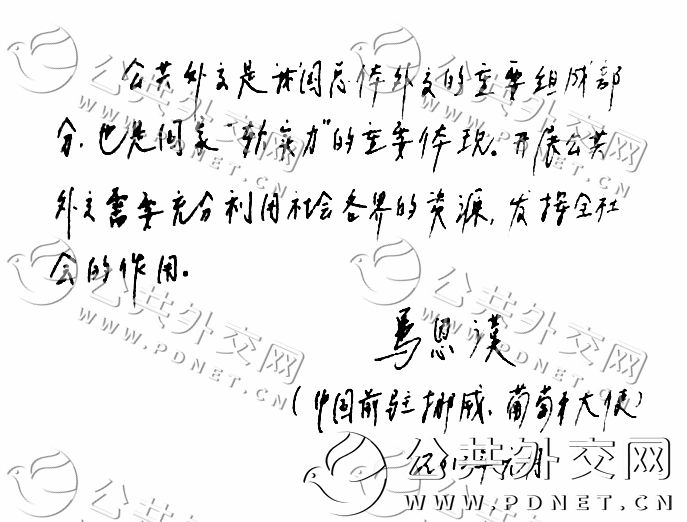 公共外交是我国总体外交的重要组成部
分,也是国家“软实力”的重要体现。开展公共
外交需要充分利用社会各界的资源,发挥全社
会的作用。
马恩汉
(中国前驻挪威、葡萄牙大使)
元月
公共外交网
WWW.PDNET.CN